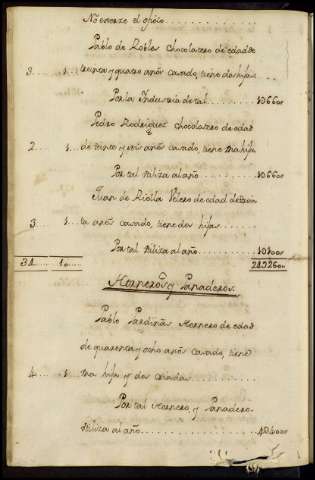 No exerze el ofizio
Pablo de Robles Chocolatero de edad de
3 .. 1 .. treinta y quatro años casado, tiene dos hijas
Por la Industria de tal ........ 1066..
Pedro Rodriguez Chocolatero de edad
2 .... 1 .. de veinte y seis años casado, tiene una hija
Por tal utiliza al año ........ 1066..
Juan de Velero de edad de
3 .... 1 .. ta años casado, tiene dos hijas
Por tal utiliza al año ........
Horneros, y Panaderos.
Pablo Pardiñas Hornero de edad
de quarenta y ocho años casado, tiene
4 .... 1 .. una hija y dos criadas
Por tal Hornero, y Panadero
utiliza al año